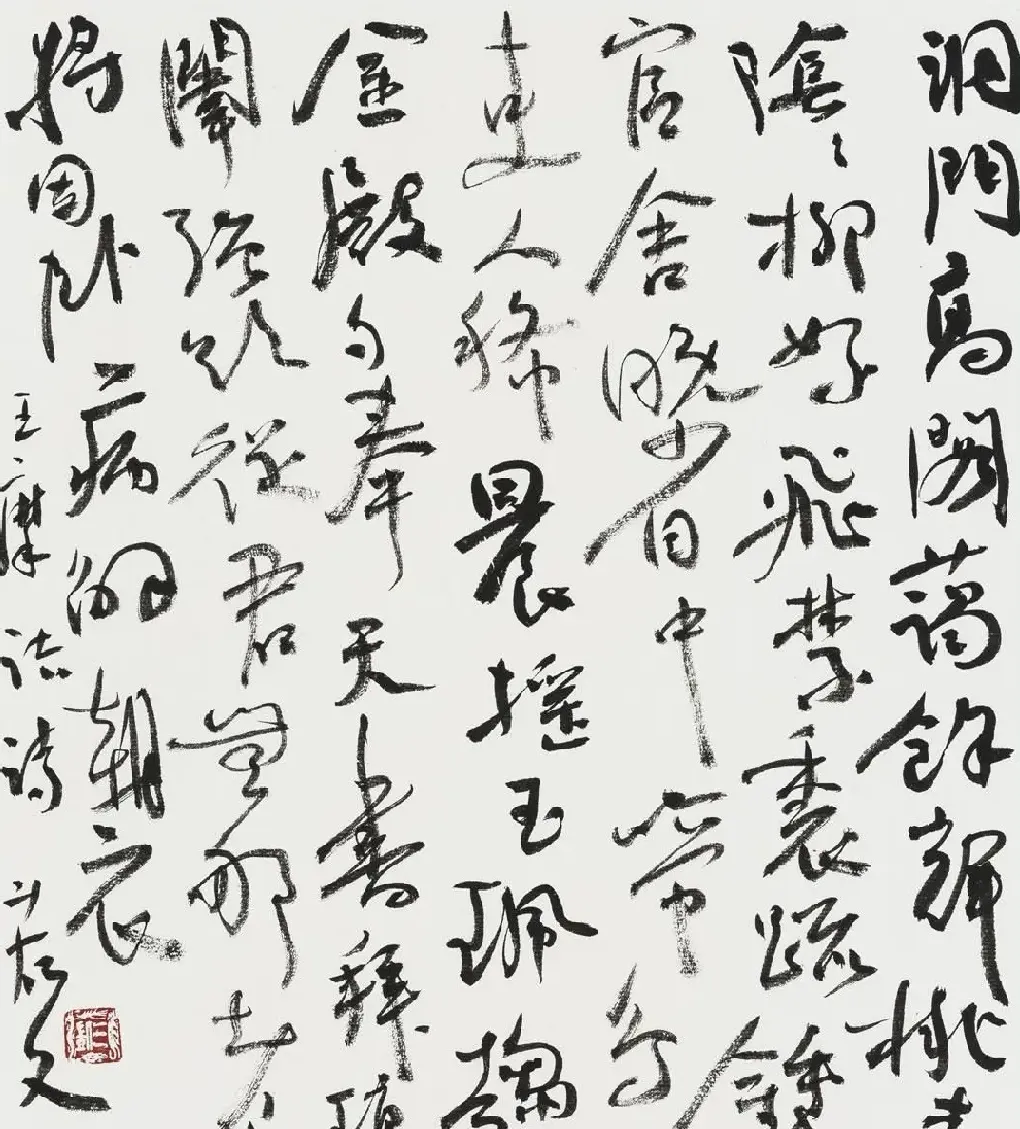 洞門高閣藹餘輝桃
陰々柳絮飛禁裏疏鐘
官舍晚省中啼鳥
吏人稀晨搖玉珮趨
金殿夕奉天書拜瑣
闈強欲從君無那老
將因臥病解朝衣
王摩詰詩 文